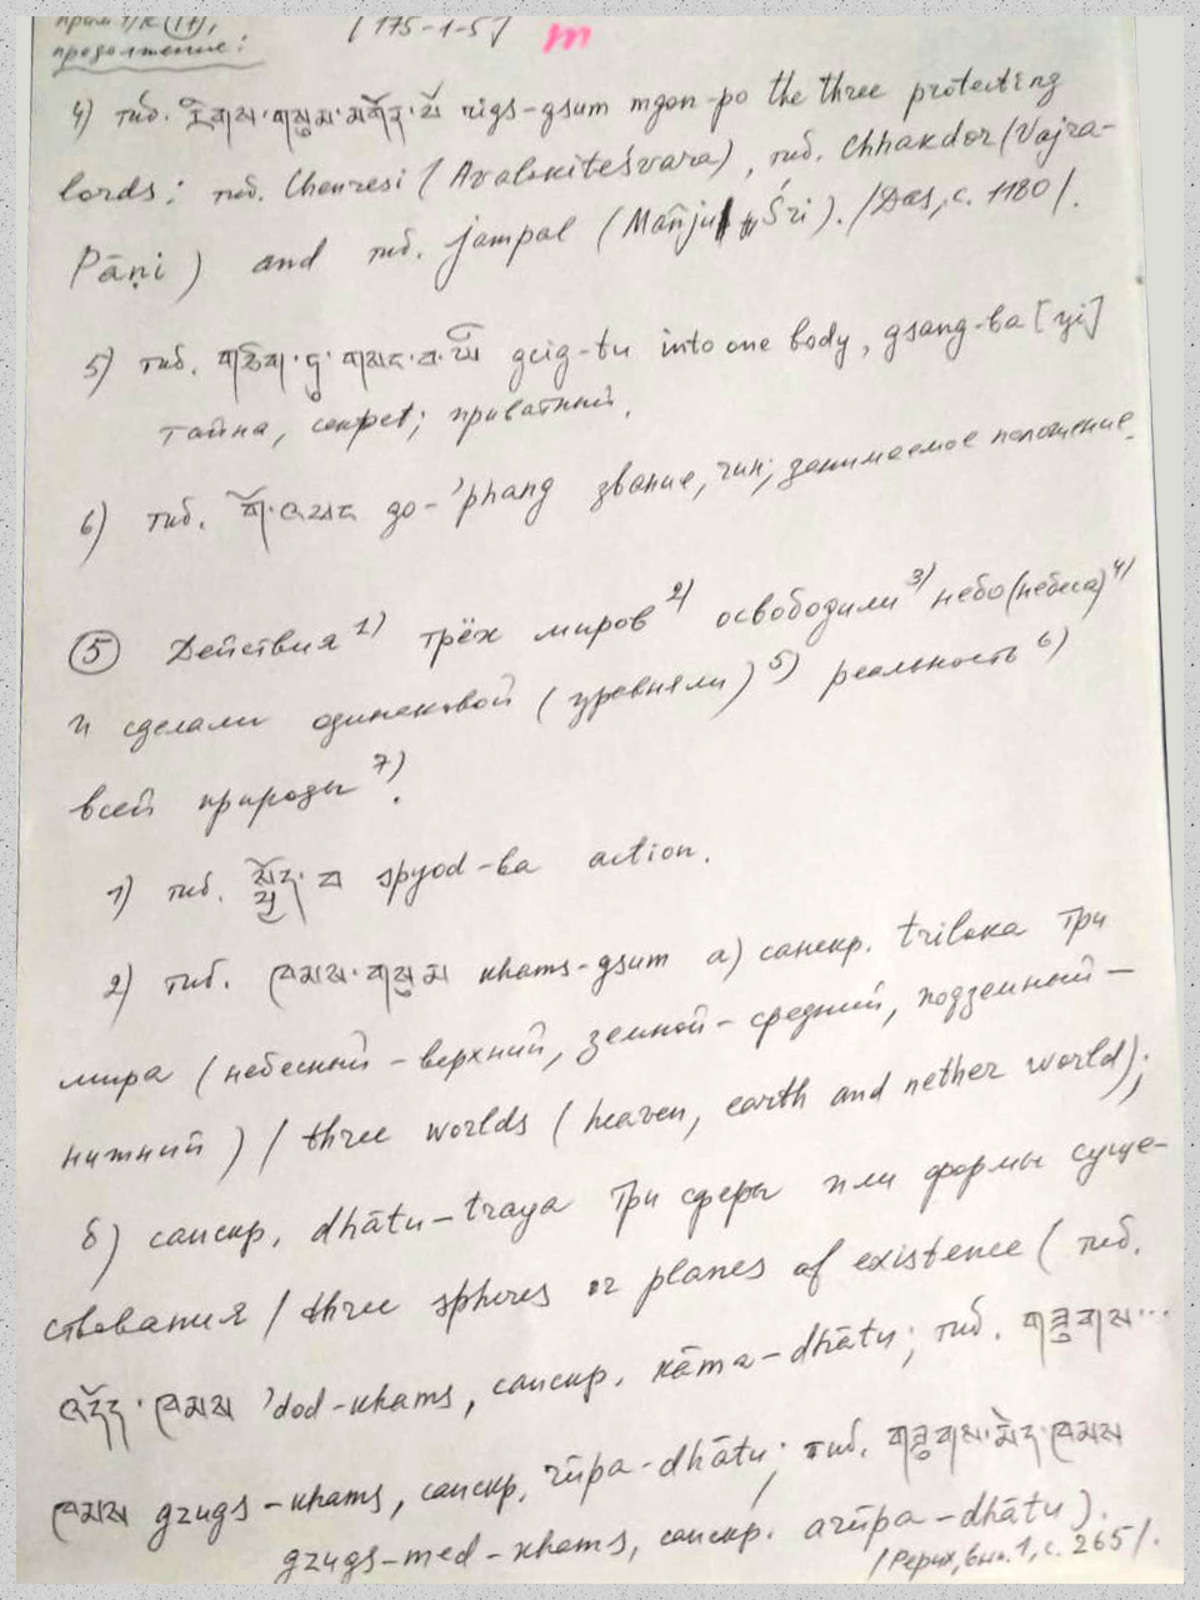 прим. т/к (17),
продолжение:
[175-1-5] m
4) тиб. རིགས་གསུམ་མགོན་པོ rigs-gsum mgon-po the three protecting
lords: тиб. Chenresi (Avalokiteśvara), тиб. Chhakdor (Vajra-
Pāṇi) and тиб. jampal (Mañju Śri). /Das, с. 1180/.
5) тиб. གཅིག་ཏུ་གསང་བ་ཡི gcig-tu into one body, gsang-ba [yi]
тайна, секрет; приватный.
6) тиб. གོ་འཕང go-'phang звание, чин; занимаемое положение.
⑤ Действия 1) трёх миров 2) освободили 3) небо (небеса) 4)
и сделали одинаковой (уравняли) 5) реальность 6)
всей природы 7).
1) тиб. སྤྱོད་བ spyod-ba action.
2) тиб. ཁམས་གསུམ khams-gsum а) санскр. triloka три
мира (небесный – верхний, земной – средний, подземный –
нижний) / three worlds (heaven, earth and nether world);
б) санскр. dhātu-traya три сферы или формы суще-
ствования / three spheres or planes of existence (тиб.
འདོད་ཁམས 'dod-khams, санскр. kāma-dhātu; тиб. གཟུགས...
ཁམས gzugs-khams, санскр. rūpa-dhātu; тиб. གཟུགས་མེད་ཁམས
gzugs-med-khams, санскр. arūpa-dhātu).
/Рерих, вып. 1, с. 265/.